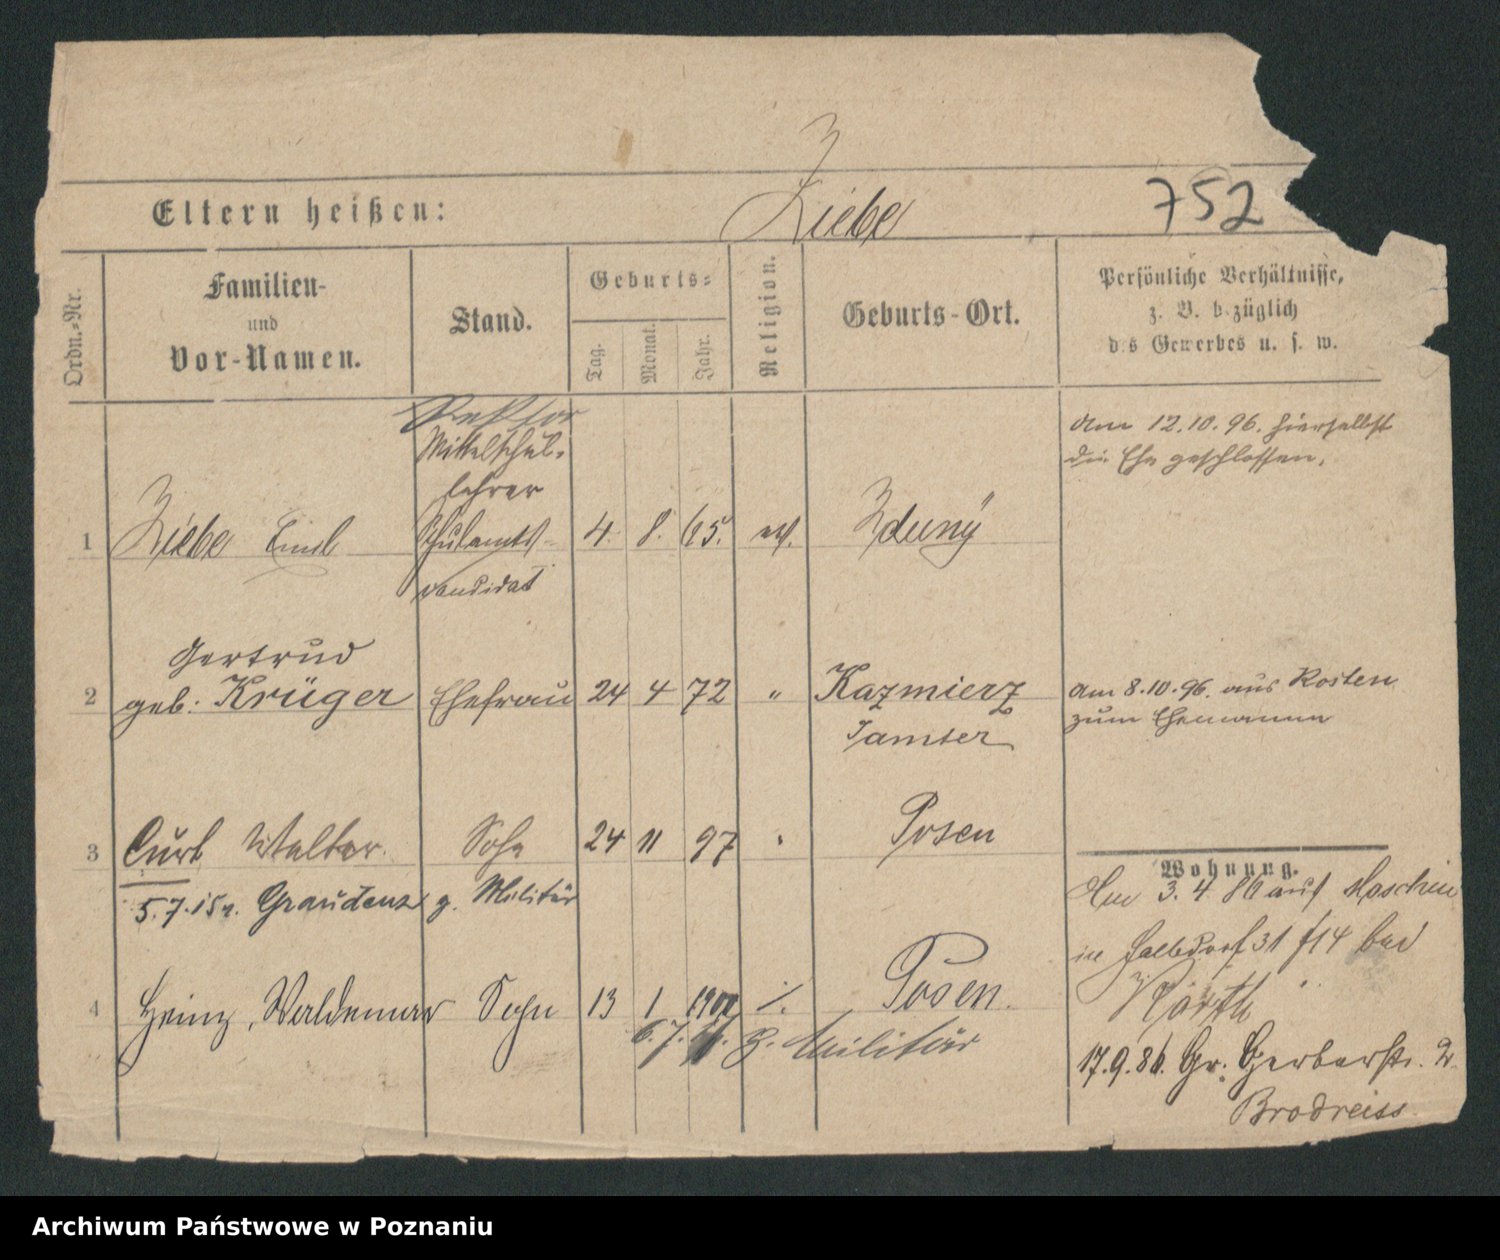 Eltern heißen:
Ziebe
752
Ordn.-Nr.
Familien-
und
Vor-Namen.
Stand.
Geburts-
Tag.
Monat.
Jahr.
Religion.
Geburts-Ort.
Persönliche Verhältnisse,
z. B. bezüglich
des Gewerbes u. s. w.
Rektor
Mittelschul-
lehrer
1 Ziebe Emil Schulamts- 4. 8. 65. ev. Zduny
kandidat
Am 12.10.96. hierselbst
die Ehe geschlossen.
Gertrud
2 geb. Krüger Ehefrau 24 4 72 " Kazmierz
Samter
am 8.10.96. aus Kosten
zum Ehemann
3 Curt Walter Sohn 24 11 97 " Posen
5.7.15 n. Graudenz z. Militär
4 Heinz, Waldemar Sohn 13 1 1900 Posen
6.7. z. Militär
Wohnung.
Am 3.4.86 auf
in Halbdorf 31 bei
17.9.86. Gr. Gerberstr. 2
Brodreiss
Archiwum Państwowe w Poznaniu